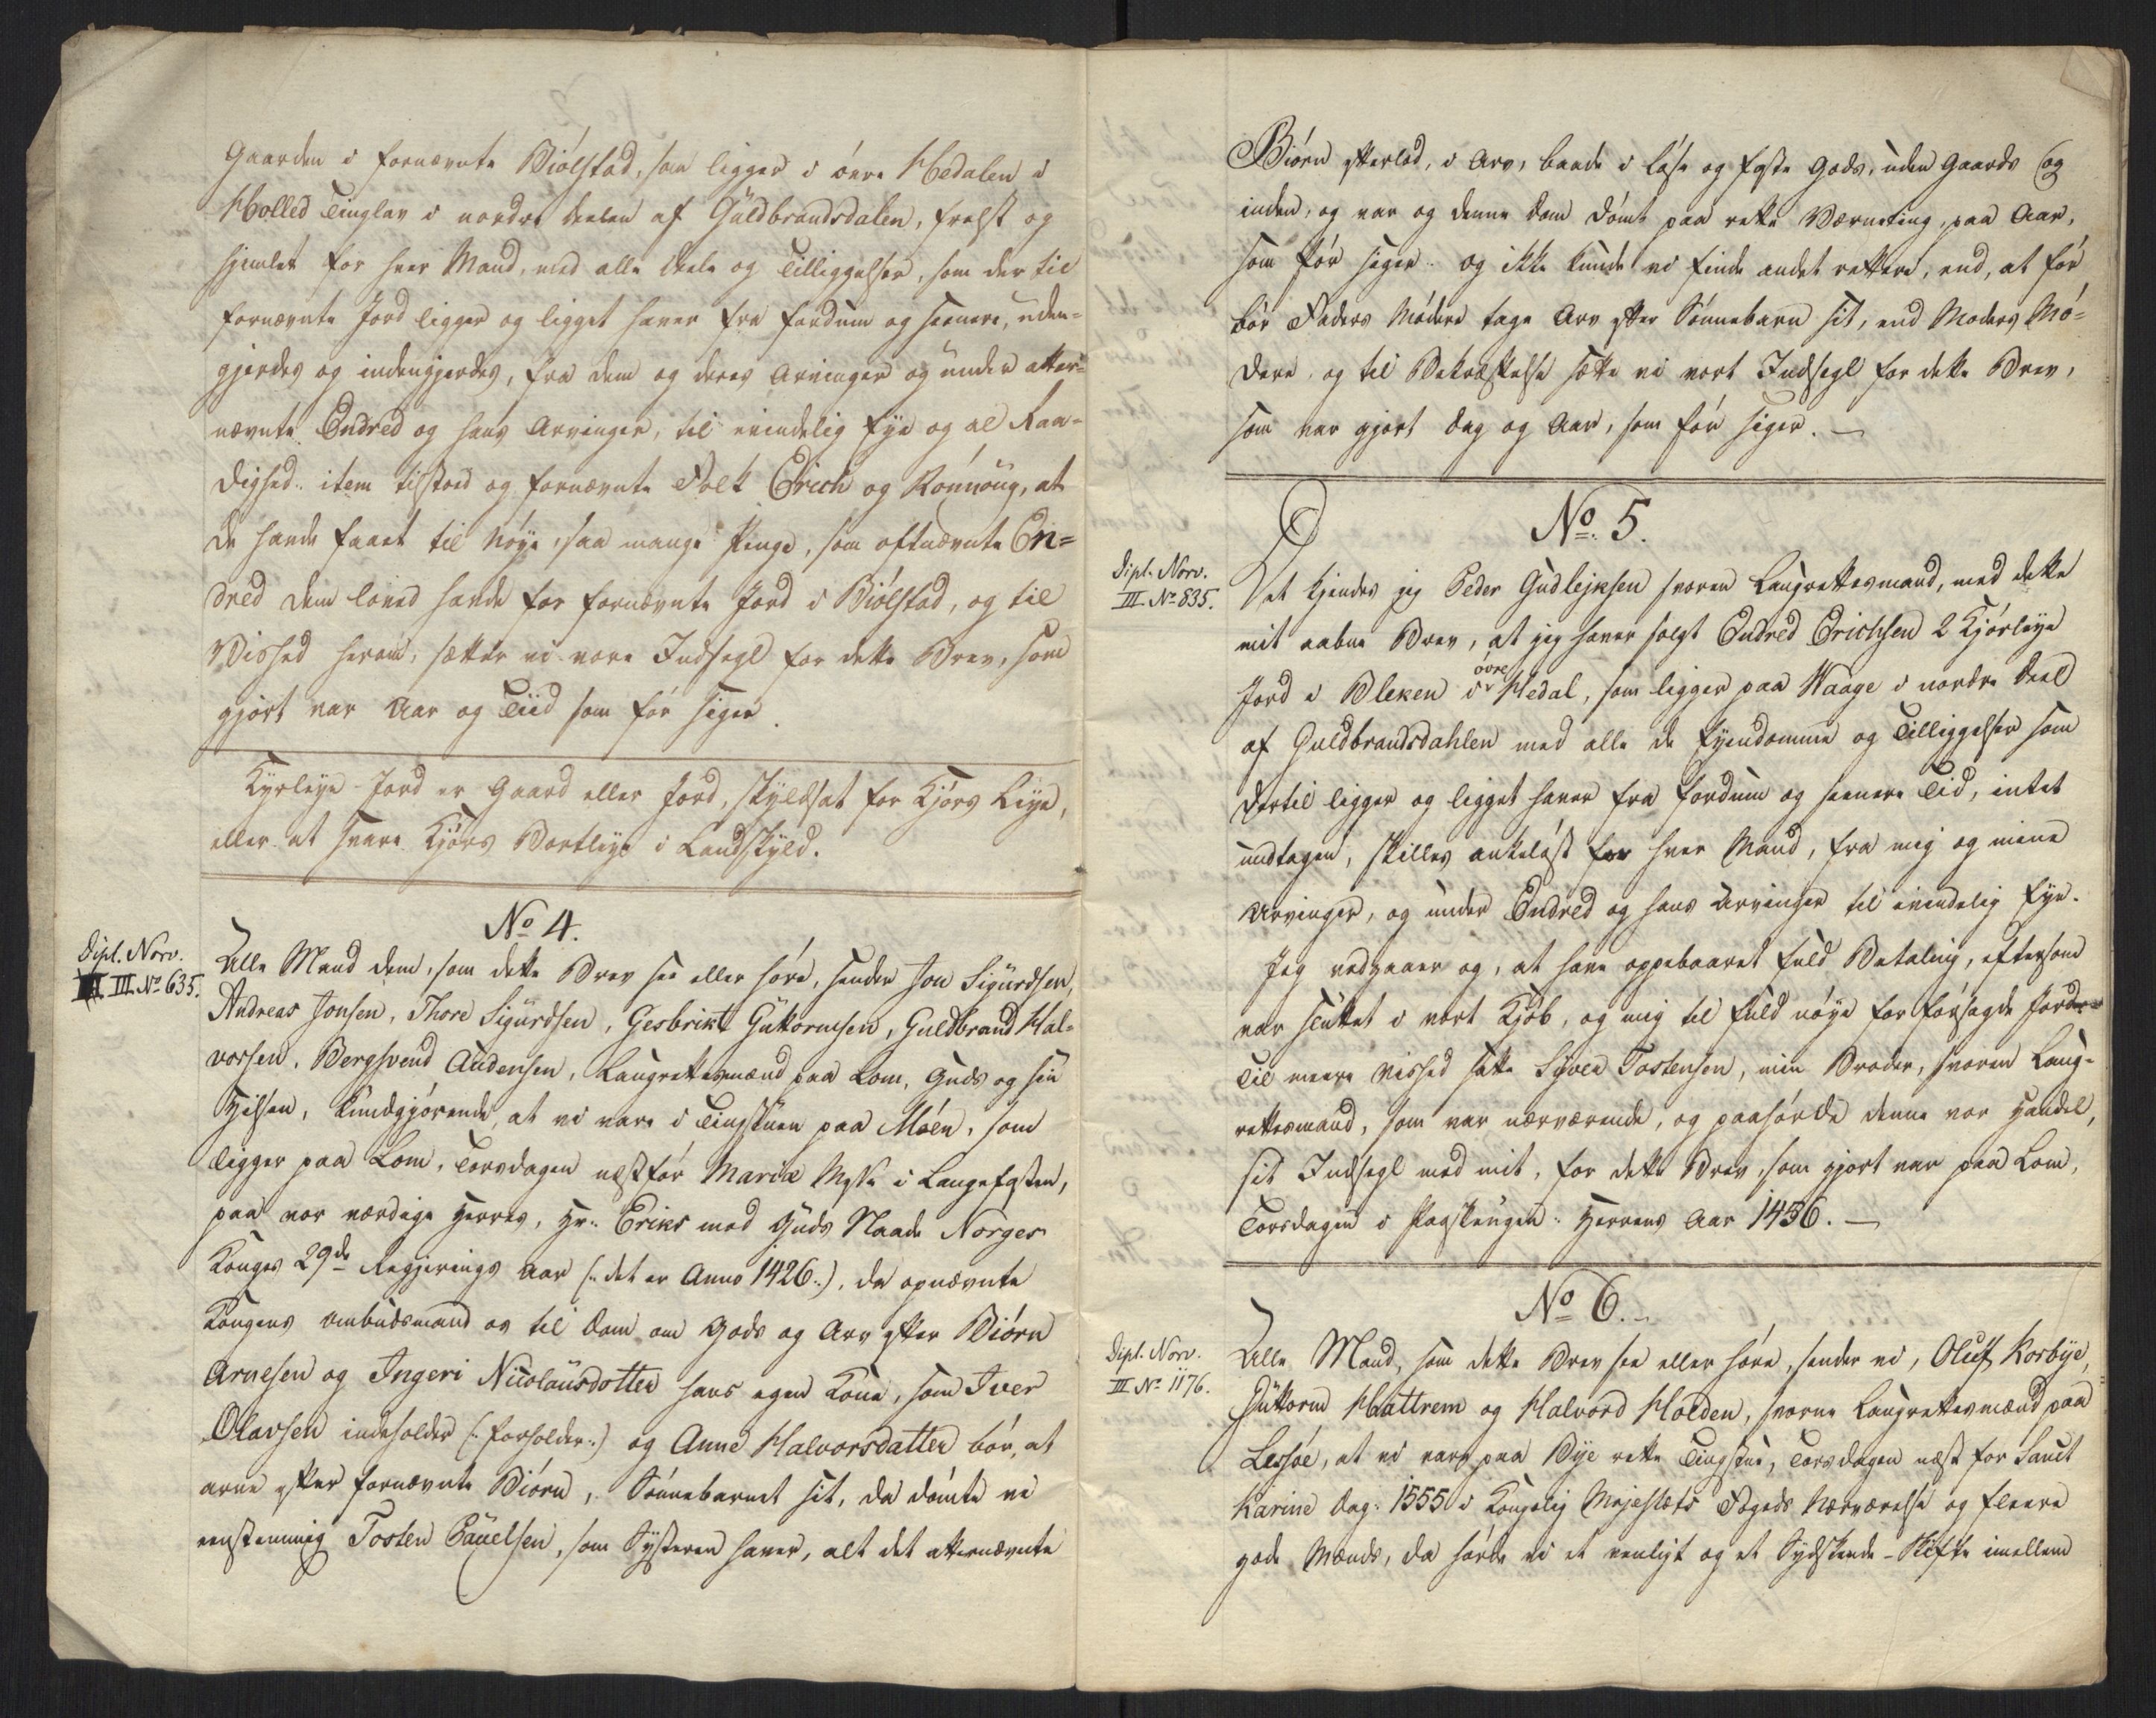 Gaarden i fornævnte Biólstad, som ligger i óvre Hedalen i
Holled Tinglav i nordre deelen af Guldbrandsdalen, frelst og
hjemlet for hver Mand, med alle deele og Tilliggelser, som der til
fornævnte Jord ligger og ligget haver fra fordum og seenere, uden-
gjerdes og indengjerdes, fra dem og deres Arvinger og under atter-
nævnte Endred og hans Arvinger, til evindelig Eye og al Raa-
dighed. item tilstoed og fornævnte Folk Erich og Rónnoug, at
de havde faaet til Nóye, saa mange Penge, som oftnævnte En=
dred dem loved havde for fornævnte Jord i Biólstad, og til
Vished herom, sætter vi vore Indsegl for dette Brev, som
gjórt var Aar og Tiid som fór siger.
Kyrleye-Jord er Gaard eller Jord, skyldsat for Kjórs Leye,
eller at svare Kjórs Bortleye i Landskyld.
No 4.
Dipl. Norv.
III No 635.
Alle Mænd dem, som dette Brev see eller hóre, sender Jon Sigurdsen,
Andreas Jonsen, Thore Sigurdsen, Gesbrikt Guttormsen, Guldbrand Hal-
vorsen, Bergsvend Audensen, Laugrettesmænd paa Lom, Guds og sin
Hilsen, kundgjórende, at vi vare i Tingstuen paa Móen, som
ligger paa Lom, Torsdagen næstfór Mariæ Messe i Langefasten,
paa vor værdige Herres, Hr. Eriks med Guds Naade Norges
Konges 29de Regjerings Aar (: det er Anno 1426 :), da opnævnte
Kongens Ombudsmand os til Dom om Gods og Arv efter Biórn
Arnesen og Ingeri Nicolausdotter hans egen Kone, som Iver
Olavsen indeholder (: forholder :) og Anne Halvorsdatter bór, at
arve efter fornævnte Biórn, Sónnebarnet sit, da dómte vi
eenstemmig Tosten Pauelsen, som Systeren haver, alt det atternævnte
Biórn efterlod, i Arv, baade i lóse og faste Gods, uden Gaards og
inden, og var og denne Dom dómt paa rette Værneting, paa Aar,
som fór siger. og ikke kunde vi finde andet rettere, end, at fór
bór Faders Módere tage Arv efter Sónnebarn sit, end Moders Mó-
dere. og til Bekræftelse sætte vi vort Indsegl for dette Brev,
som var gjort Dag og Aar, som fór siger. —
No. 5.
Dipl. Norv.
III No 835.
Det kjendes jeg Peder Gudlejksen svoren Laugrettesmand, med dette
mit aabne Brev, at jeg haver solgt Endred Erichsen 2 Kjórleye
Jord i Bleken i óvre Hedal, som ligger paa Waage i nordre Deel
af Guldbrandsdahlen med alle de Eyendomme og Tilliggelser som
dertil ligger og ligget haver fra fordum og seenere Tid, intet
undtagen, skilles ankelóst for hver Mand, fra mig og mine
Arvinger, og under Endred og hans Arvinger til evindelig Eye.
Jeg vedgaaer og, at have oppebaaret fuld Betaling, eftersom
var sluttet i vort Kjób, og mig til fuld nóye for fórsagde Jord
Til meere Vished satte Syver Tostensen, min Broder, svoren Laug-
rettesmand, som var nærværende, og paahórde denne vor Handel,
sit Indsegl med mit, for dette Brev, som gjort var paa Lom,
Torsdagen i Paaskeugen. Herrens Aar 1456. —
No 6.
Dipl. Norv.
III No 1176.
Alle Mænd, som dette Brev see eller hóre, sender vi, Oluf Korbye,
Guttorm Hattrem og Halvord Holden, svorne Laugrettesmænd paa
Lessóe, at vi vare paa Bye rette Tingstue, Torsdagen næst for Sanct
Karine Dag: 1555 i Kongelig Majestæts Fogeds Nærværelse og fleere
gode Mænds, da hórte vi et venligt og et Sydskende-Skifte imellem